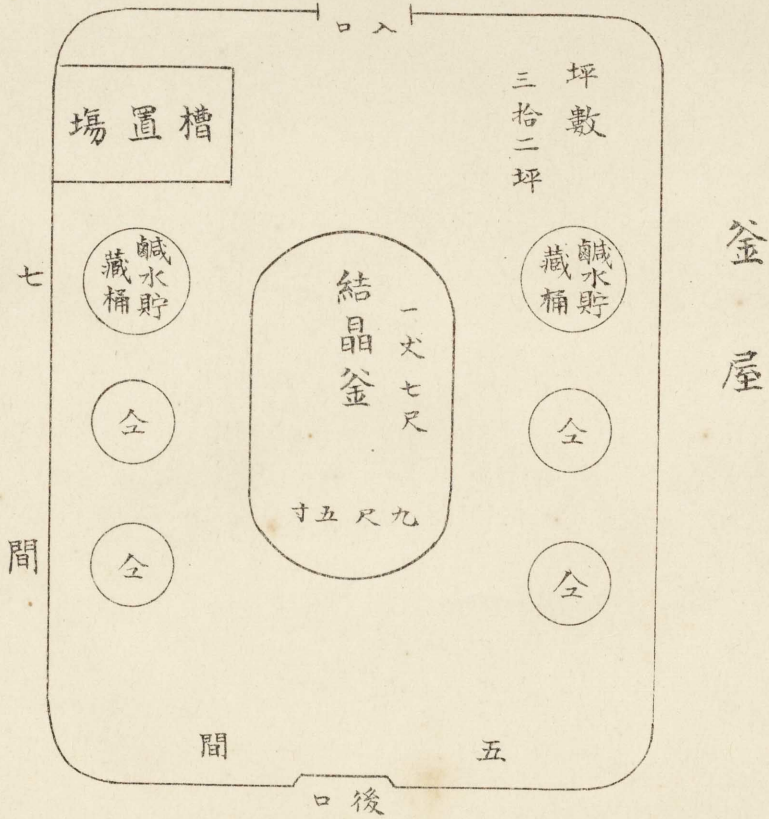 釜屋
入口
坪數
三拾二坪
槽置塲
鹹水貯
藏桶
仝
仝
結晶釜
一丈七尺
九尺五寸
鹹水貯
藏桶
仝
仝
七間
五間
後口